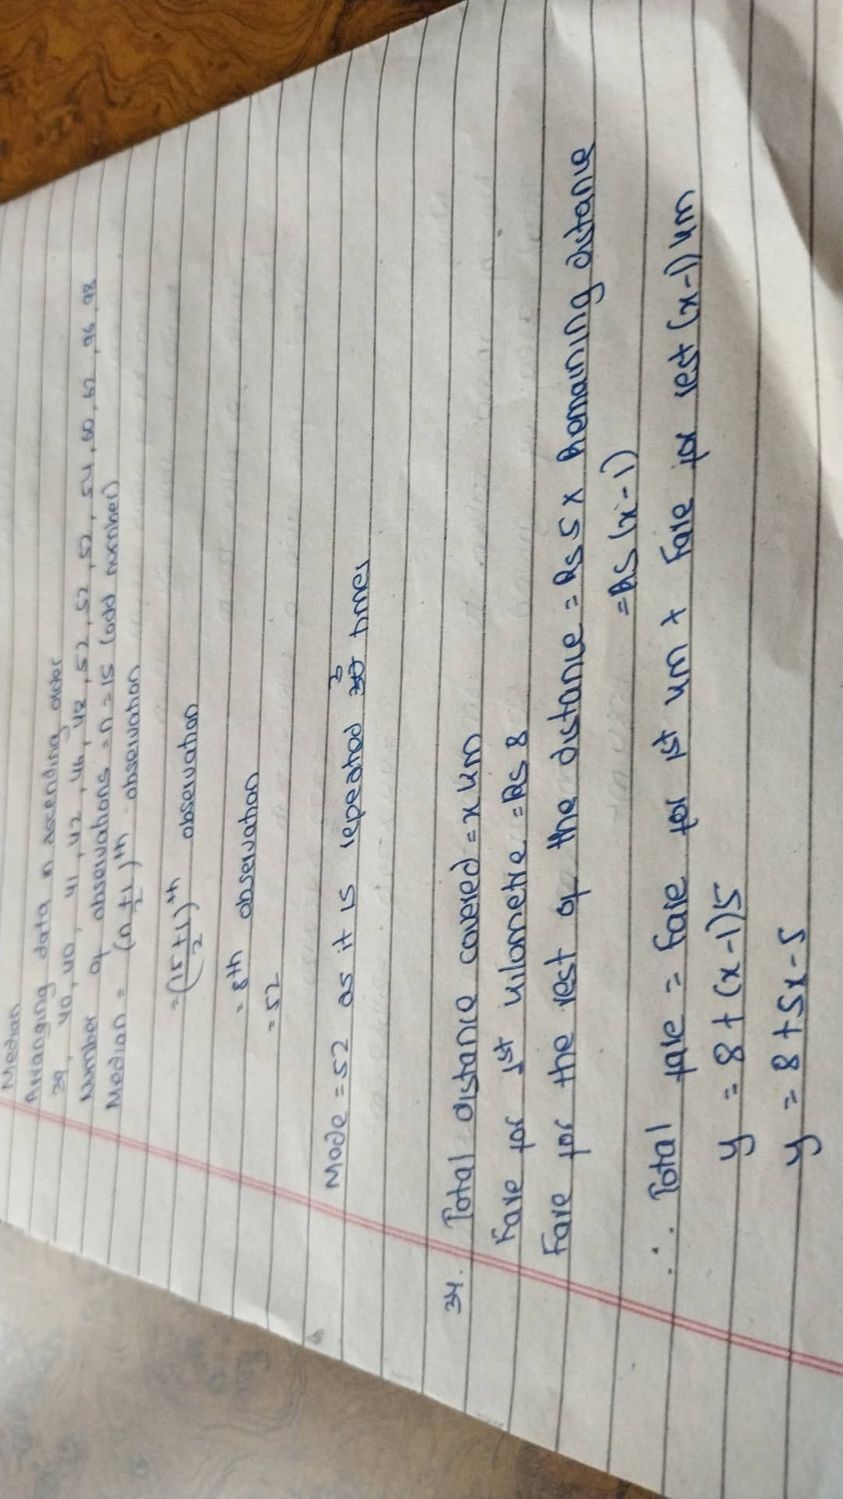 Median
Arranging data in ascending order
39, 40, 40, 41, 42, 46, 48, 52, 52, 52, 54, 60, 62, 96, 98
Number of observations = n = 15 (odd number)
Median = (n+1/2)th observation
= (15+1/2)th observation
= 8th observation
= 52
Mode = 52 as it is repeated 3 times
34. Total distance covered = x km
Fare for 1st kilometre = Rs 8
Fare for the rest of the distance = Rs 5 x Remaining distance
= Rs (x-1)
∴ Total fare = Fare for 1st km + Fare for rest (x-1) km
y = 8 + (x-1)5
y = 8 + 5x - 5